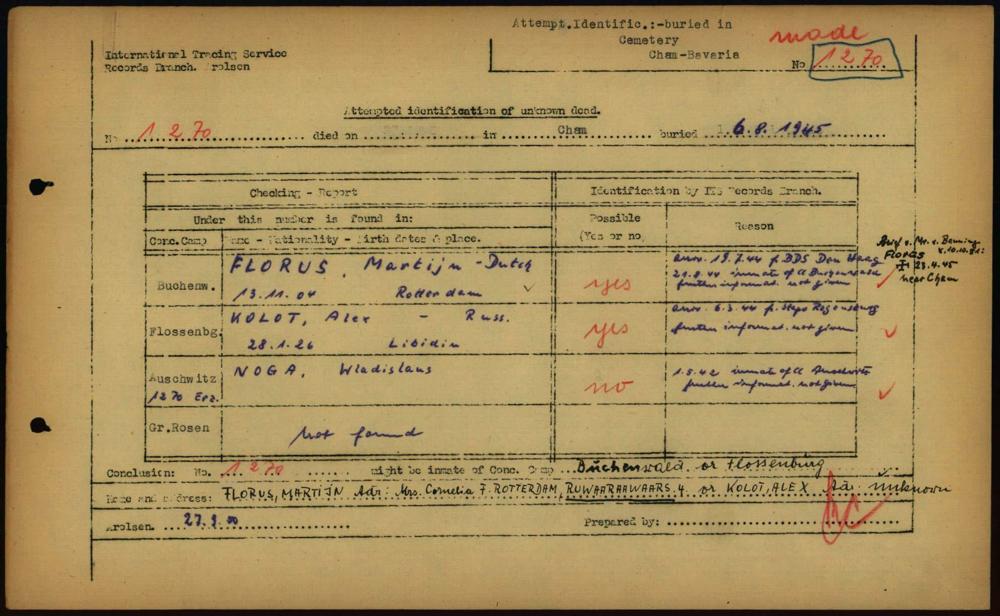 Attempt.Identific.:-buried in
Cemetery
Cham-Bavaria
made
No 1270
International Tracing Service
Records Branch. Arolsen
Attempted identification of unknown dead.
No 1270 died on in Cham buried 6.8.1945
Checking - Report
Identification by ITS Records Branch.
Under this number is found in:
Possible
(Yes or no)
Reason
Conc.Camp
Name - Nationality - Birth dates & place.
Buchenw.
FLORUS, Martijn - Dutch
13.11.04 Rotterdam
yes
arriv. 19.7.44 f. BDS Den Haag
21.8.44 inmate of CC
further informat. not given
10.10.51:
Florus
23.4.45
near Cham
Flossenbg.
KOLOT, Alex - Russ.
28.1.26 Libidin
yes
arriv. 6.3.44 f. Stapo Regensburg
further informat. not given
Auschwitz
1270 Erz.
NOGA, Wladislaus
no
1.5.42 inmate of CC Auschwitz
further informat. not given
Gr.Rosen
Not found
Conclusion: No. 1270 might be inmate of Conc. Camp Buchenwald or Flossenbürg
Name and address: FLORUS, MARTIJN Adr: Mrs. Cornelia F. ROTTERDAM, RUWAARAAWAARS. 4 or KOLOT, ALEX Adr. unknown
Arolsen. 27.9.50
Prepared by: